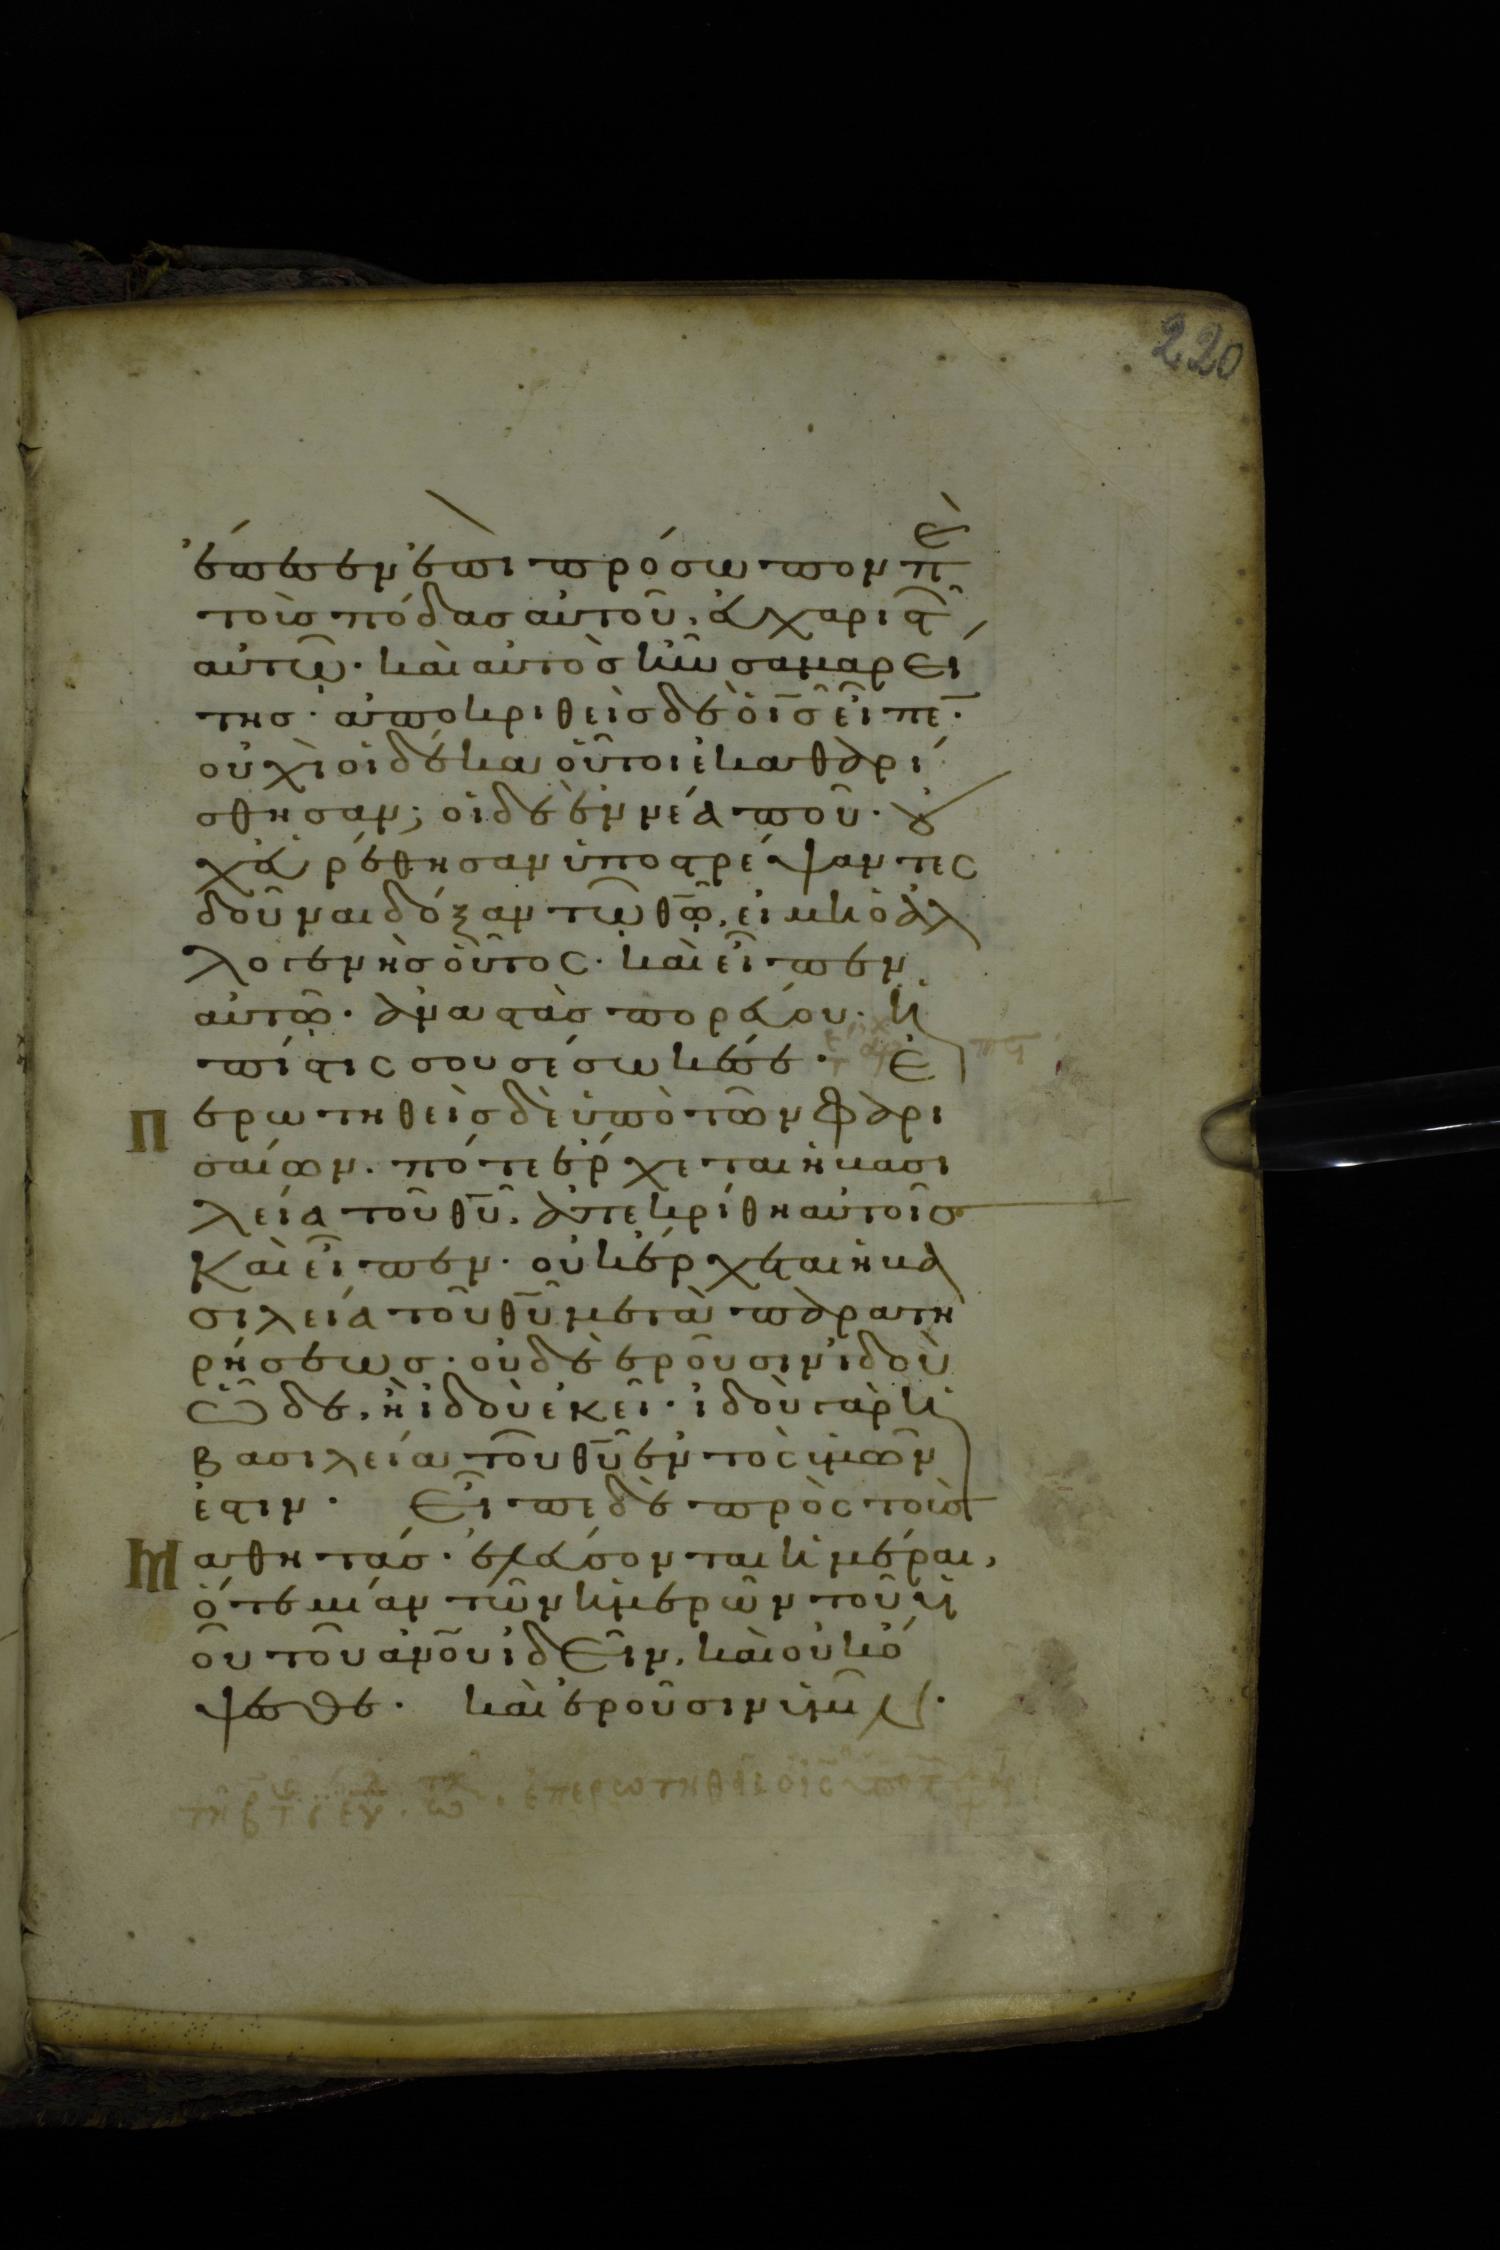 220
ἔπεσεν ἐπι πρόσωπον πὲ
τοὺσ πόδασ αὐτοῦ, εὐχαριστῶ
αὐτῶ. καὶ αὐτὸσ ἦν σαμαρεί
τησ. ἀποκριθεὶσ δὲ ὁ ι̅σ̅ εἶπε.
οὐχὶ οἱ δέκα οὗτοι ἐκαθαρί
σθησαν; οἱ δὲ ἐννέα ποῦ. οὐ
χ εὑρέθησαν ὑποστρέψαντες
δοῦναι δόξαν τῶ θ̅ω̅, εἰ μὴ ὁ ἀλ
λογενὴσ οὗτος. καὶ εἶπεν
αὐτῶ. ἀναστὰσ πορεύου. ἡ
πίστις σου σέσωκέσε. Ἐ
περωτηθεὶσ δὲ ὑπὸ τῶν φαρι
σαίων. πότε ἔρχεται ἡ βασι
λεία τοῦ θ̅υ̅, ἀπεκρίθη αὐτοῖσ
καὶ εἶπεν. οὐκ ἔρχεται ἡ βα
σιλεία τοῦ θ̅υ̅ μετὰ παρατη
ρήσεωσ. οὐδὲ ἐροῦσιν ἰδοὺ
ὧδε, ἢ ἰδοὺ ἐκεῖ. ἰδοὺ γὰρ ἡ
βασιλεία τοῦ θ̅υ̅ ἐντὸς ὑμῶν
ἐστιν. Εἶπε δὲ πρὸς τοὺσ
μαθητάσ. ἐλεύσονται ἡμέραι,
ὅτε μίαν τῶν ἡμερῶν τοῦ υἱ
οῦ τοῦ ἀνοῦ ἰδεῖν, καὶ οὐκ ό
ψεσθε. καὶ ἐροῦσιν ὑμῖν.
ἐπερωτηθεὶς ὁ ι̅ς̅